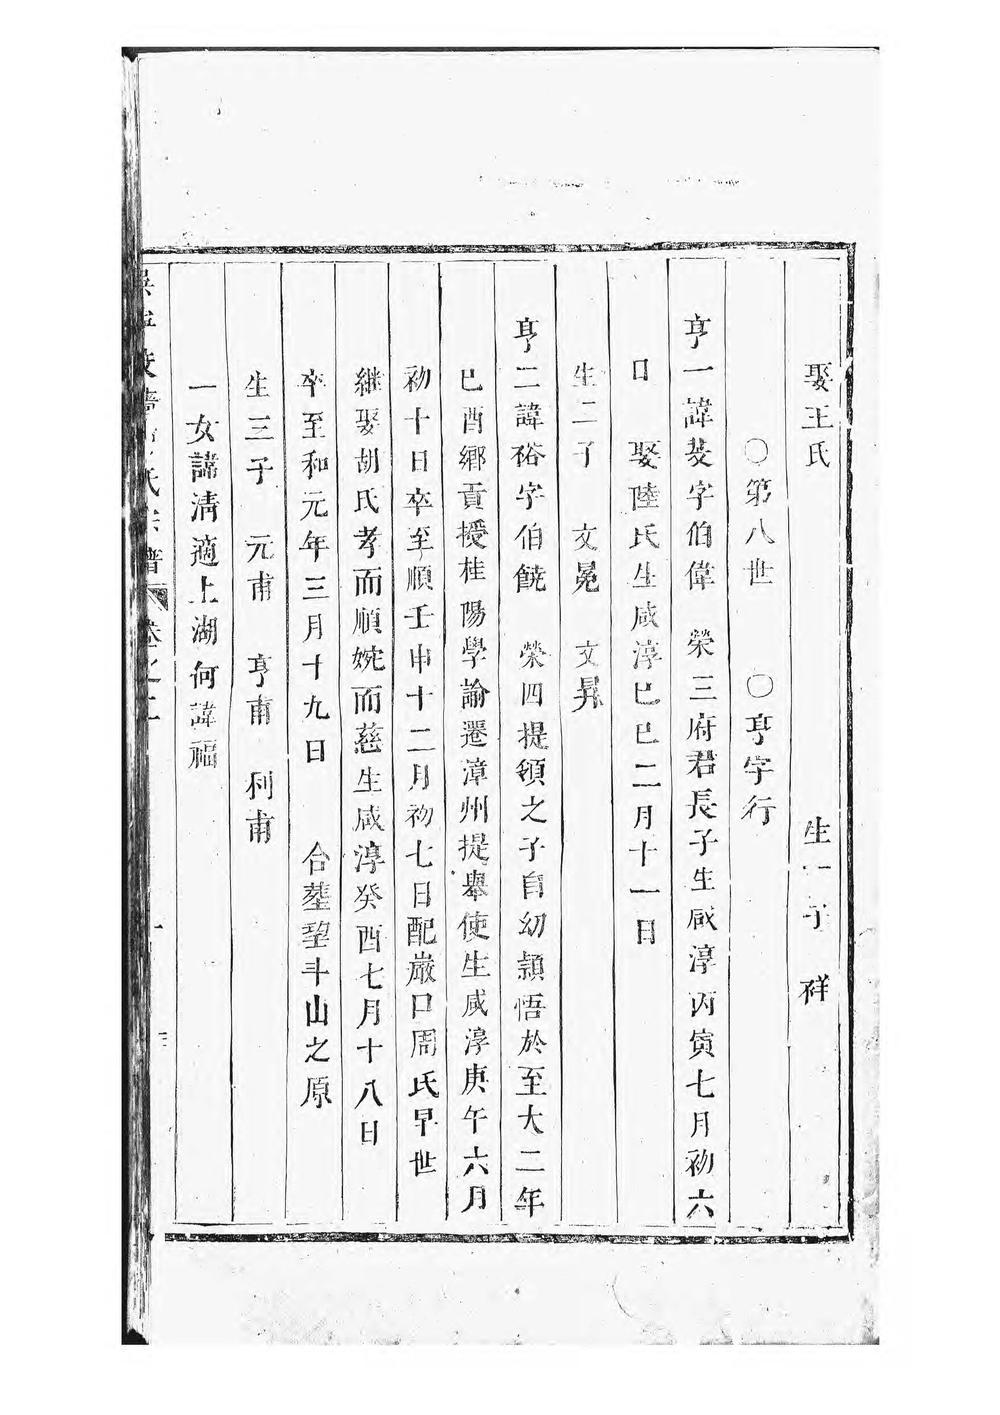 娶王氏 生一子 祥
○第八世 ○亨字行
亨一諱发字伯偉 榮三府君長子生咸淳丙寅七月初六
日 娶陸氏生咸淳己巳二月十一日
生二子 文冕 文昇
亨二諱裕字伯饒 榮四提領之子自幼穎悟於至大二年
己酉鄉貢授桂陽學諭遷漳州提舉使生咸淳庚午六月
初十日卒至順壬申十二月初七日配巖口周氏早世
継娶胡氏孝而順婉而慈生咸淳癸酉七月十八日
卒至和元年三月十九日 合塟望斗山之原
生三子 元甫 亨甫 利甫
一女諱清適上湖何諱福
氏宗譜 卷之二